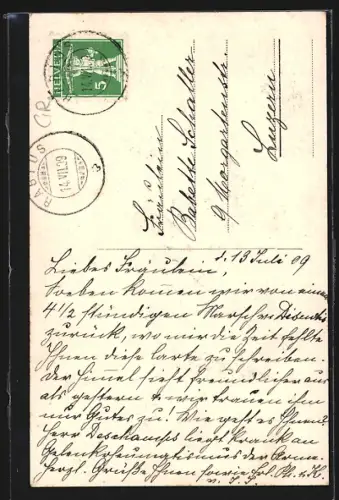 HELVETIA
5
RABIUS
14.VII.09
Fräulein
Babette Schaller
9 Morgartenstr.
Luzern
d. 13 Juli 09
Liebes Fräulein,
Soeben kommen wir von einem
4 1/2 stündigen Marsch v. Disentis
zurück, wo mir die Zeit fehlte
Ihnen diese Carte zu schreiben.
Der Himmel sieht freundlicher aus
als gestern + wir trauen ihm
nur Gutes zu! Wie geht es Ihnen?
Herr Deschamps liegt krank an
Gelenkrheumatismus der Arme.
Herzl. Grüße Ihnen sowie Frl.